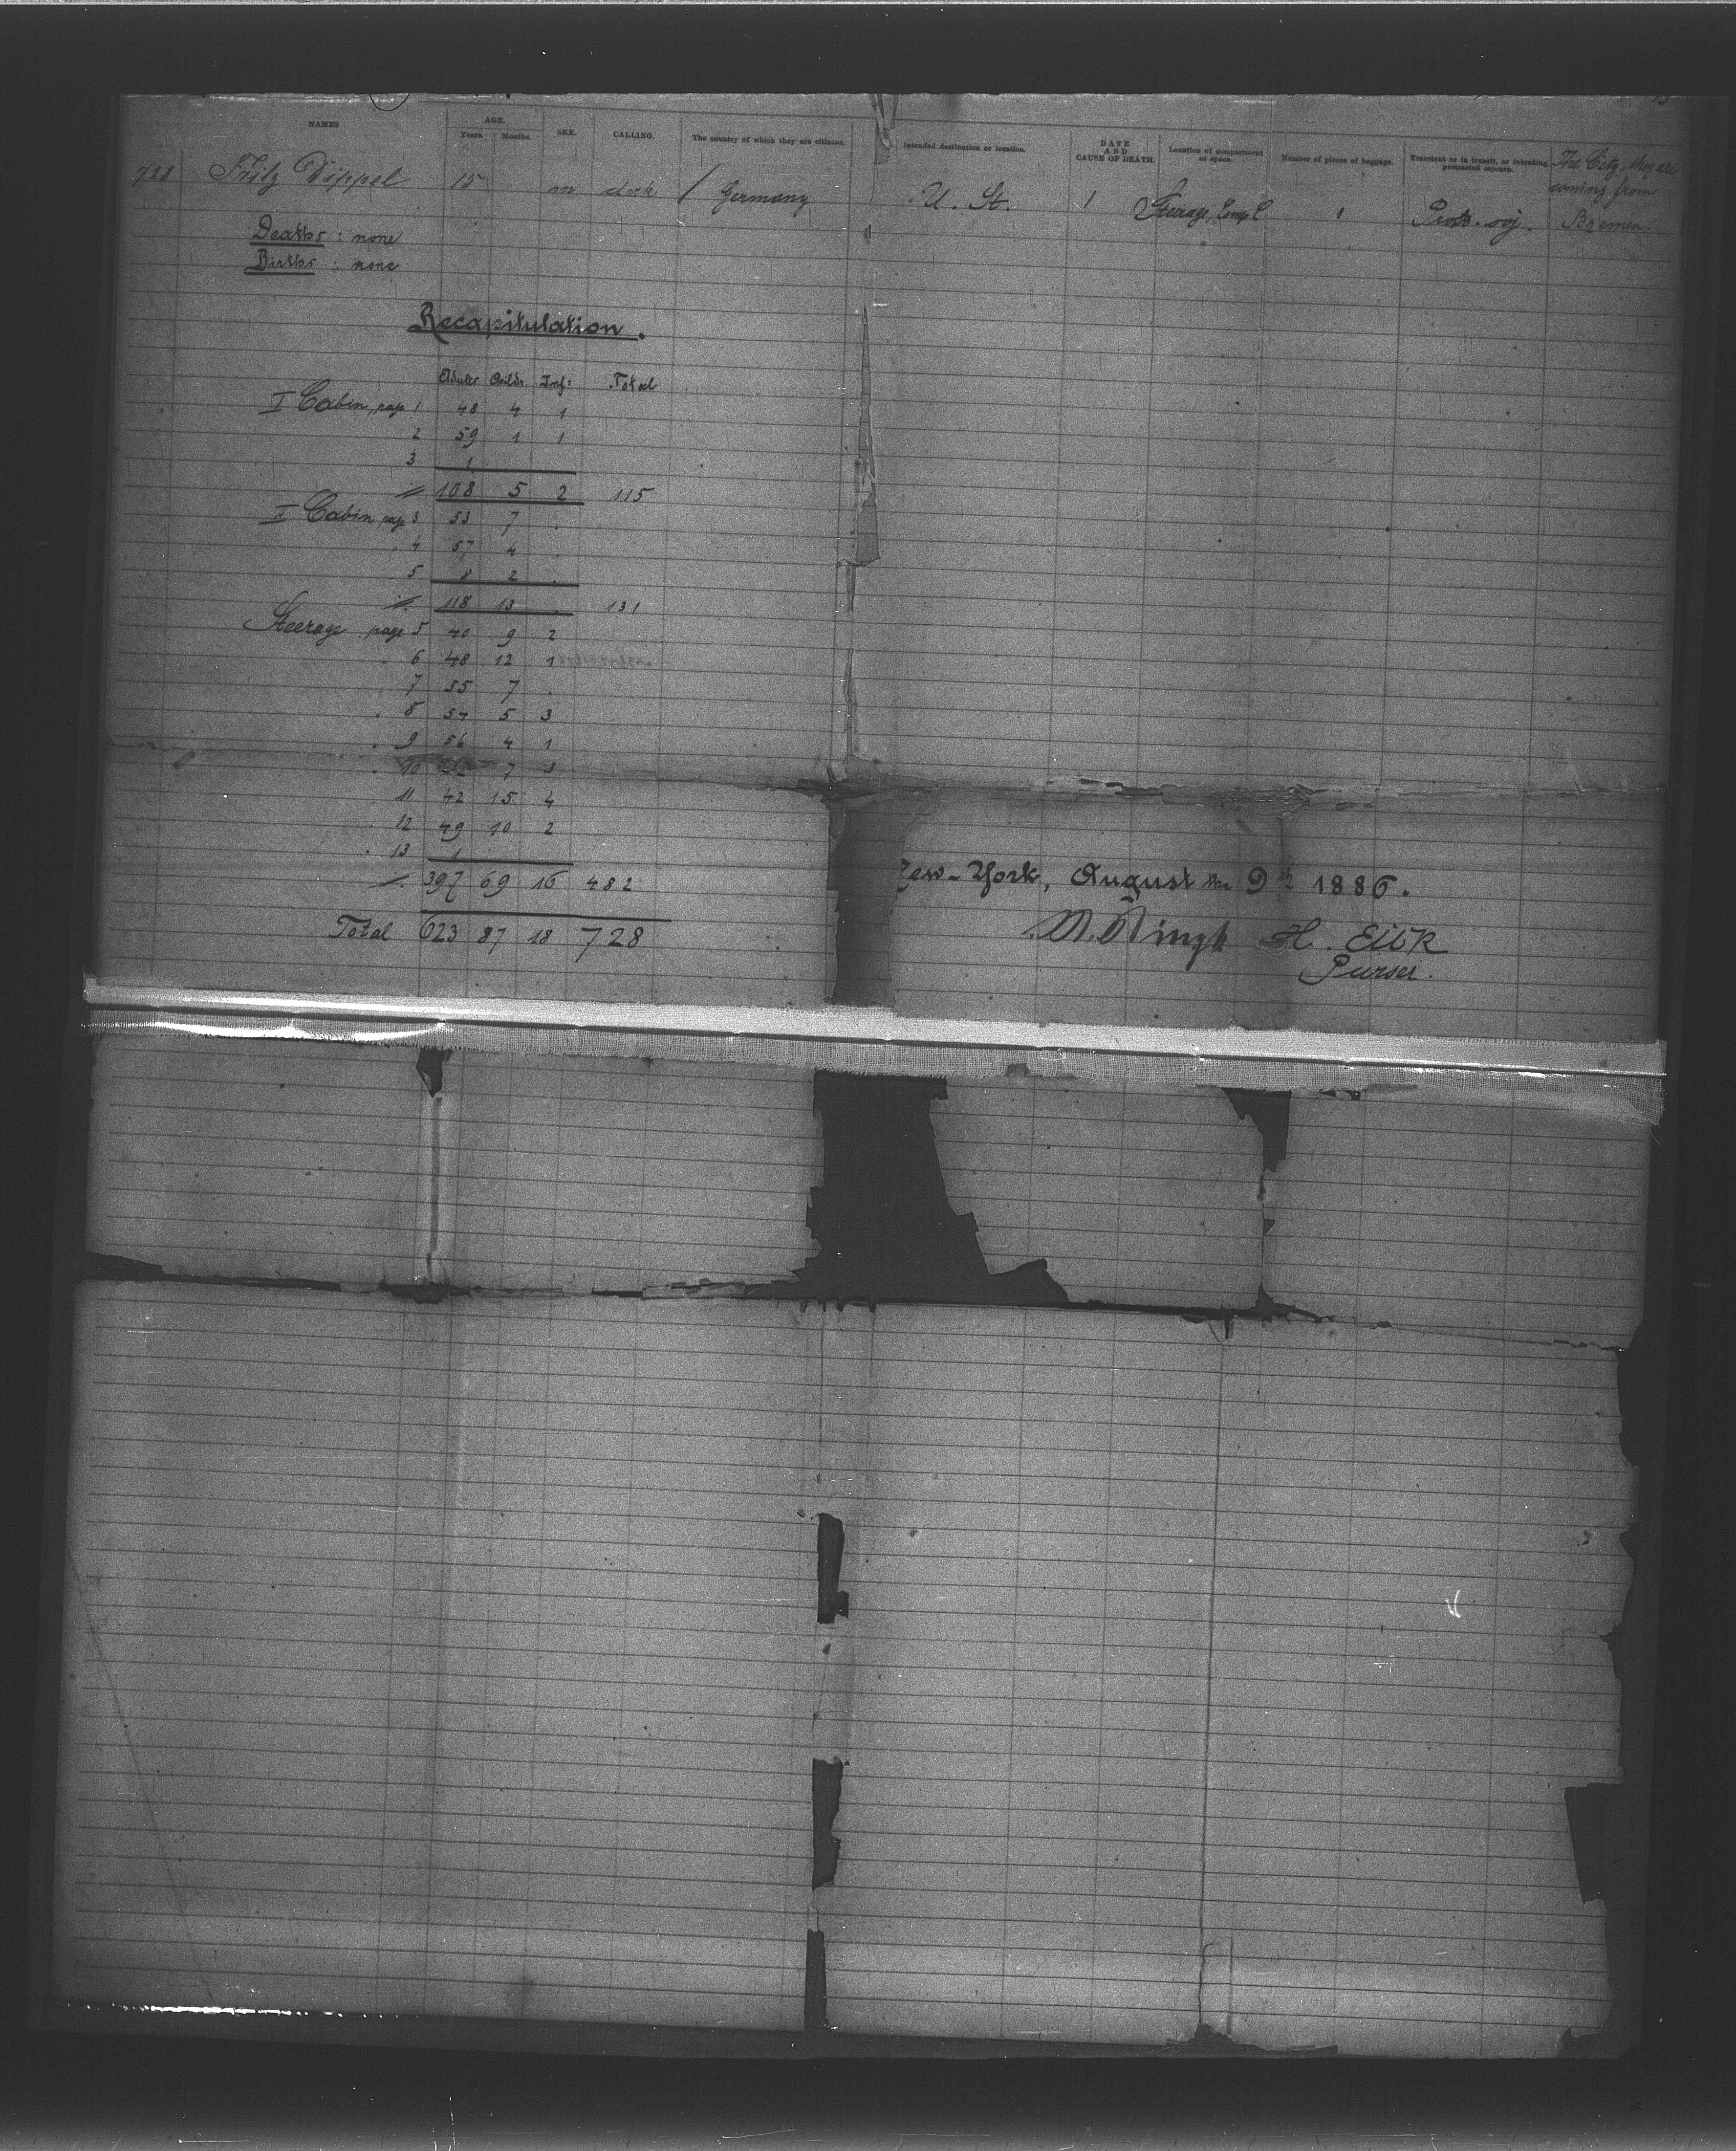 NAMES AGE. Years. Months. SEX. CALLING. The country of which they are citizens. Intended destination or location. DATE AND CAUSE OF DEATH. Location of compartment or space. Number of pieces of baggage. Transient or in transit, or intending protracted sojourn. The City, they are coming from
728 Fritz Dippel 15 m clerk / Germany U. St. 1 Steerage, Comp. C 1 Protr. soj. Bremen
Deaths : none
Births : none
Recapitulation.
Adults Childr Inf: Total
I Cabin, page 1 48 4 1
2 59 1 1
3 1
108 5 2 115
II Cabin page 3 53 7 .
4 57 4 .
5 8 2 .
118 13 . 131
Steerage page 5 40 9 2
6 48 12 1
7 55 7 .
8 54 5 3
9 56 4 1
10 52 7 3
11 42 15 4
12 49 10 2
13 1
397 69 16 482
Total 623 87 18 728
New-York, August the 9th 1886.
H. Eilk
Purser.